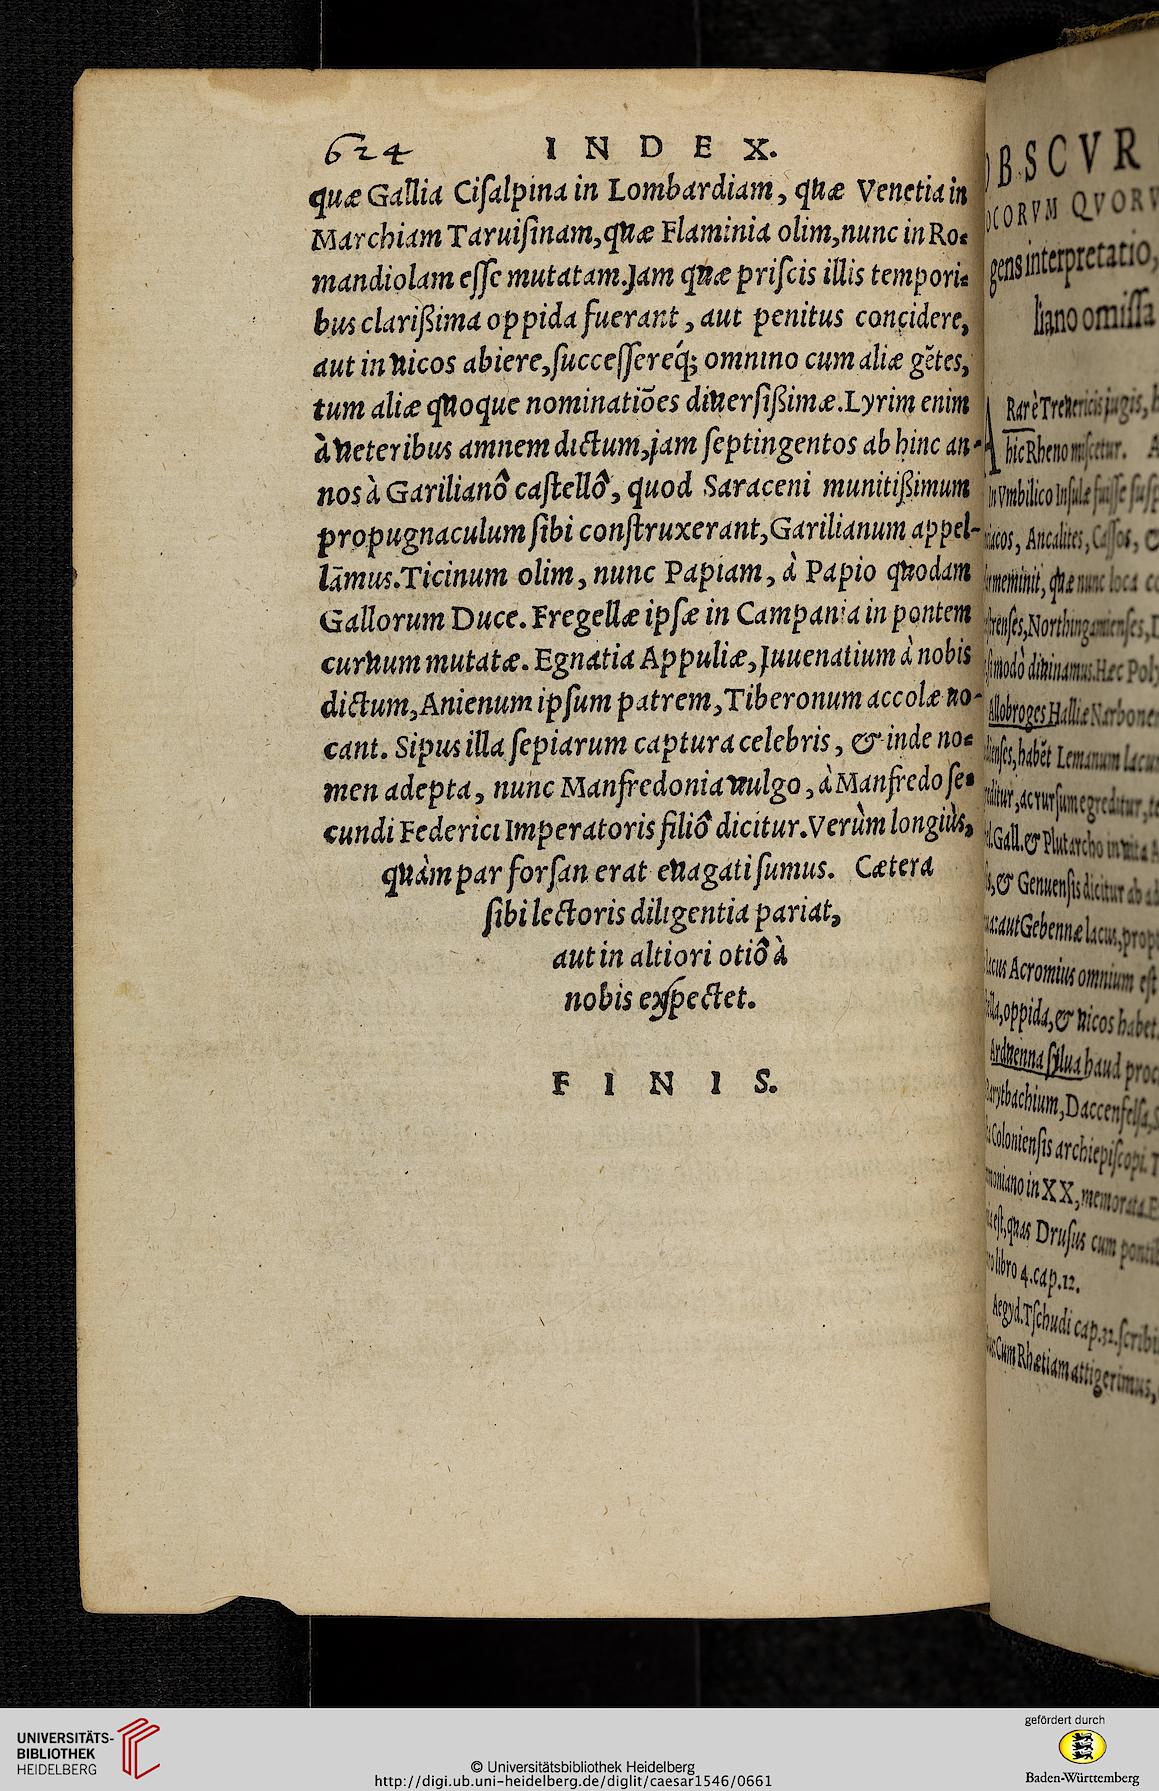 624 INDEX.
quæ Gallia Ciſalpina in Lombardiam, quæ Venetia in
Marchiam Taruiſinam, quæ Flaminia olim, nunc in Ro⸗
mandiolam eſſe mutatam. Jam quæ priſcis illis tempori⸗
bus clarißima oppida fuerant, aut penitus concidere,
aut in vicos abiere, ſucceſſereq́; omnino cum aliæ gẽtes,
tum aliæ quoque nominatiões diverſißimæ. Lyrim enim
à veteribus amnem dictum, jam ſeptingentos ab hinc an-
nos à Garilianô caſtellô, quod Saraceni munitißimum
propugnaculum ſibi conſtruxerant, Garilianum appel-
lāmus. Ticinum olim, nunc Papiam, à Papio quodam
Gallorum Duce. Fregellæ ipſæ in Campania in pontem
curvum mutatæ. Egnatia Appuliæ, Juuenatium à nobis
dictum, Anienum ipſum patrem, Tiberonum accolæ vo-
cant. Sipus illa ſepiarum captura celebris, & inde no⸗
men adepta, nunc Manfredonia vulgo, à Manfredo ſe⸗
cundi Federici Imperatoris filiô dicitur. Verùm longiùs,
quàm par forſan erat evagati ſumus. Cætera
ſibi lectoris diligentia pariat,
aut in altiori otiô à
nobis exſpectet.
FINIS.
BSCVR
OCORVM QVORV
gens interpretatio,
liano omiſſa
Rarè Trevericis jugis,
hic Rheno miſcetur.
in Vmbilico Inſulæ fuiſſe
Ancalites, Caſſos, &
meminit, quæ nunc loca
Northingamienſes,
modò divinamus. Hec
Allobroges Halliæ
habẽt Lemanum lacum
ac rurſum egreditur,
Gall. & Plutarcho in vita
& Genuenſis dicitur ab
aut Gebennæ lacus,
Acromius omnium eſt
oppida, & vicos habet.
Arduenna ſylua haud
Colonienſis archiepiſcopi.
in XX, memorata
eſt, quas Druſus cum
libro 4. cap. 12.
Aegyd. Tſchudi cap. 32. ſcribi
Cum Rhætiam attigerimus,
UNIVERSITÄTS-
BIBLIOTHEK
HEIDELBERG
© Universitätsbibliothek Heidelberg
http://digi.ub.uni-heidelberg.de/diglit/caesar1546/0661
gefördert durch
Baden-Württemberg